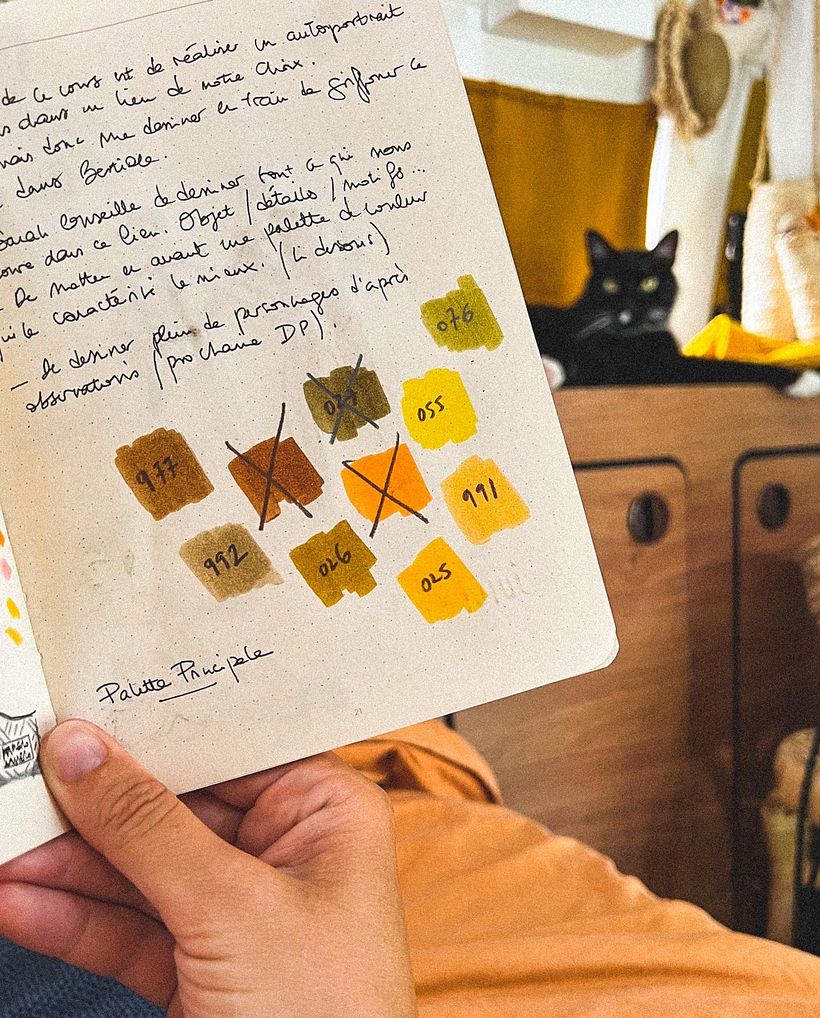 de ce cours est de réaliser un autoportrait
dans un lieu de notre choix.
donc me dessiner en train de griffoner ce
dans
Sarah conseille de dessiner tout ce qui nous
dans ce lieu. Objet / détails / motifs...
De mettre en avant une palette de couleur
qui le caractérise le mieux. (ci dessous)
— de dessiner plein de personnages d'après
observations (prochaine DP).
076
055
977
991
992
026
025
Palette Principale